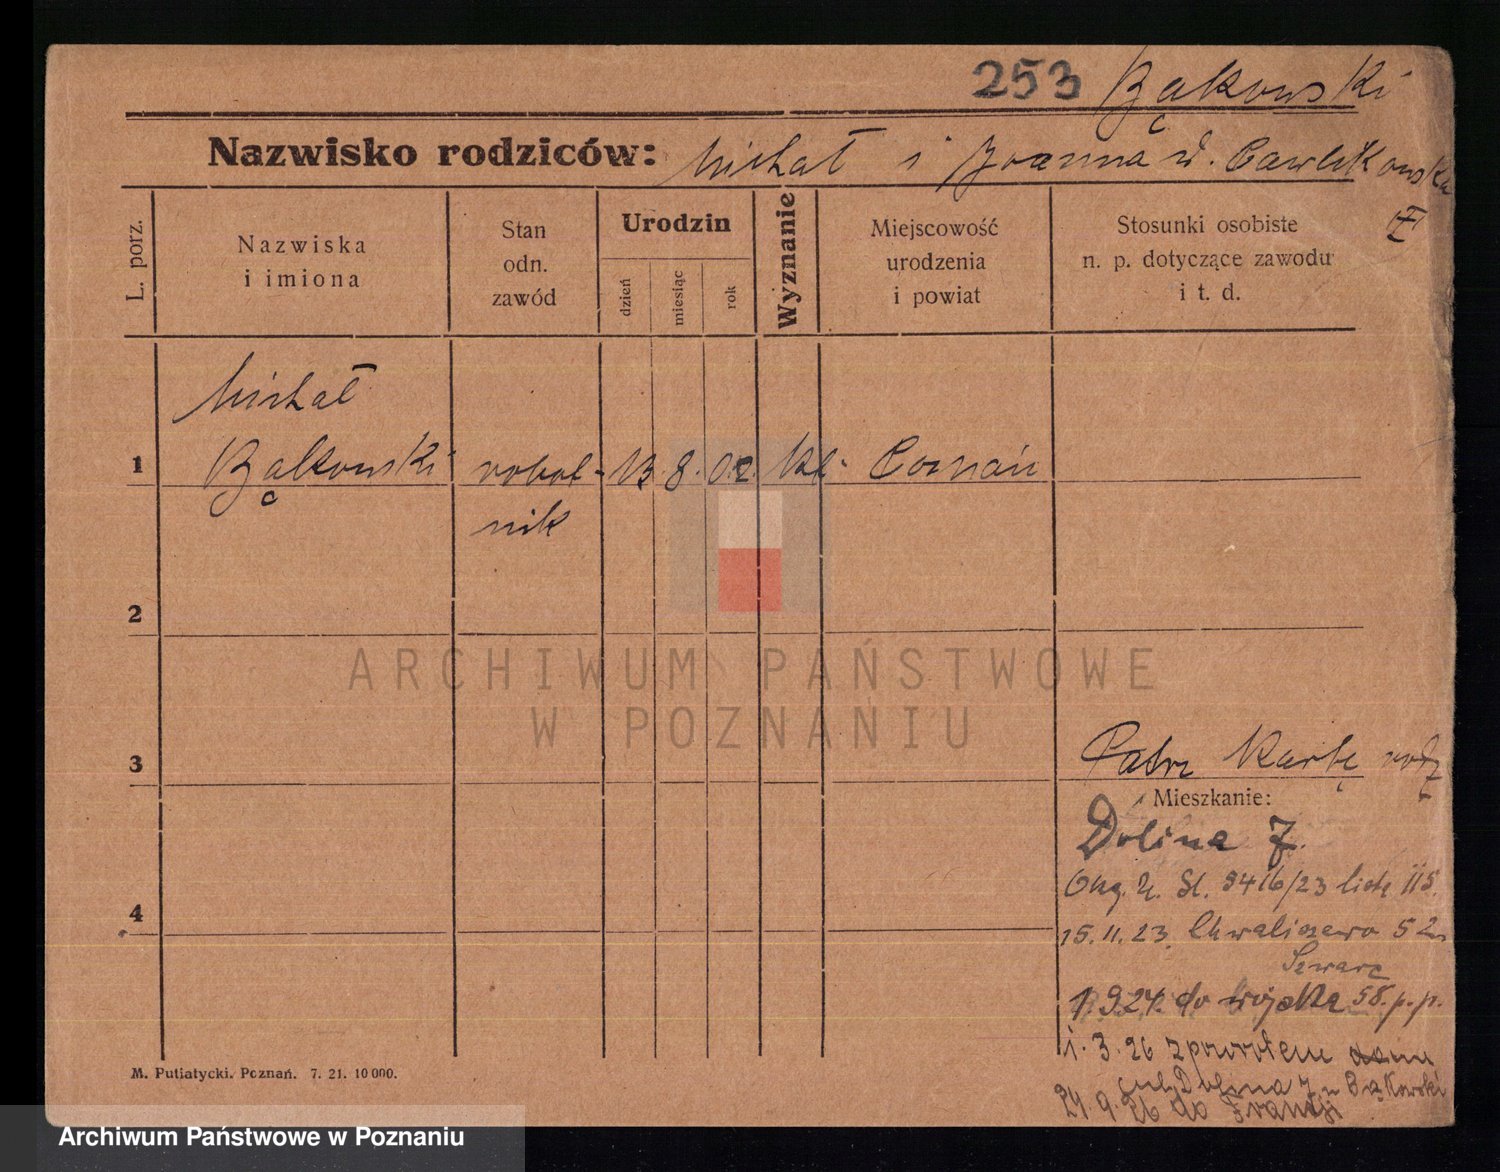 253 Bąkowski
Nazwisko rodziców: Michał i Joanna z d. Pawlikowska
L. porz.
Nazwiska
i imiona
Stan
odn.
zawód
Urodzin
dzień
miesiąc
rok
Wyznanie
Miejscowość
urodzenia
i powiat
Stosunki osobiste
n. p. dotyczące zawodu
i t. d.
Michał
1 Bąkowski robot- 13. 8. 02. kt. Poznań
nik
2
ARCHIWUM PAŃSTWOWE
W POZNANIU
3 Patrz Kartę rodz
Mieszkanie:
Dolina 7.
St. 5416/23 listę 115.
4
15. 11. 23. Chwaliszewo 52
Szwarc
1. 9 24. do wojska 58. p. p.
1. 3. 26 z powrotem
Dolina 7 u Bąkowski
24. 9. 26 do Francji
M. Putiatycki. Poznań. 7. 21. 10 000.
Archiwum Państwowe w Poznaniu